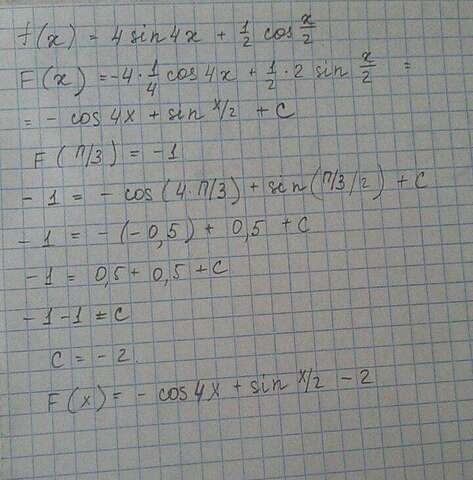 f(x) = 4 sin 4x + 1/2 cos x/2
F(x) = -4 · 1/4 cos 4x + 1/2 · 2 sin x/2 =
= - cos 4x + sin x/2 + C
F(π/3) = -1
- 1 = - cos(4·π/3) + sin(π/3/2) + C
- 1 = - (-0,5) + 0,5 + C
-1 = 0,5 + 0,5 + C
- 1 - 1 = C
C = - 2
F(x) = - cos 4x + sin x/2 - 2